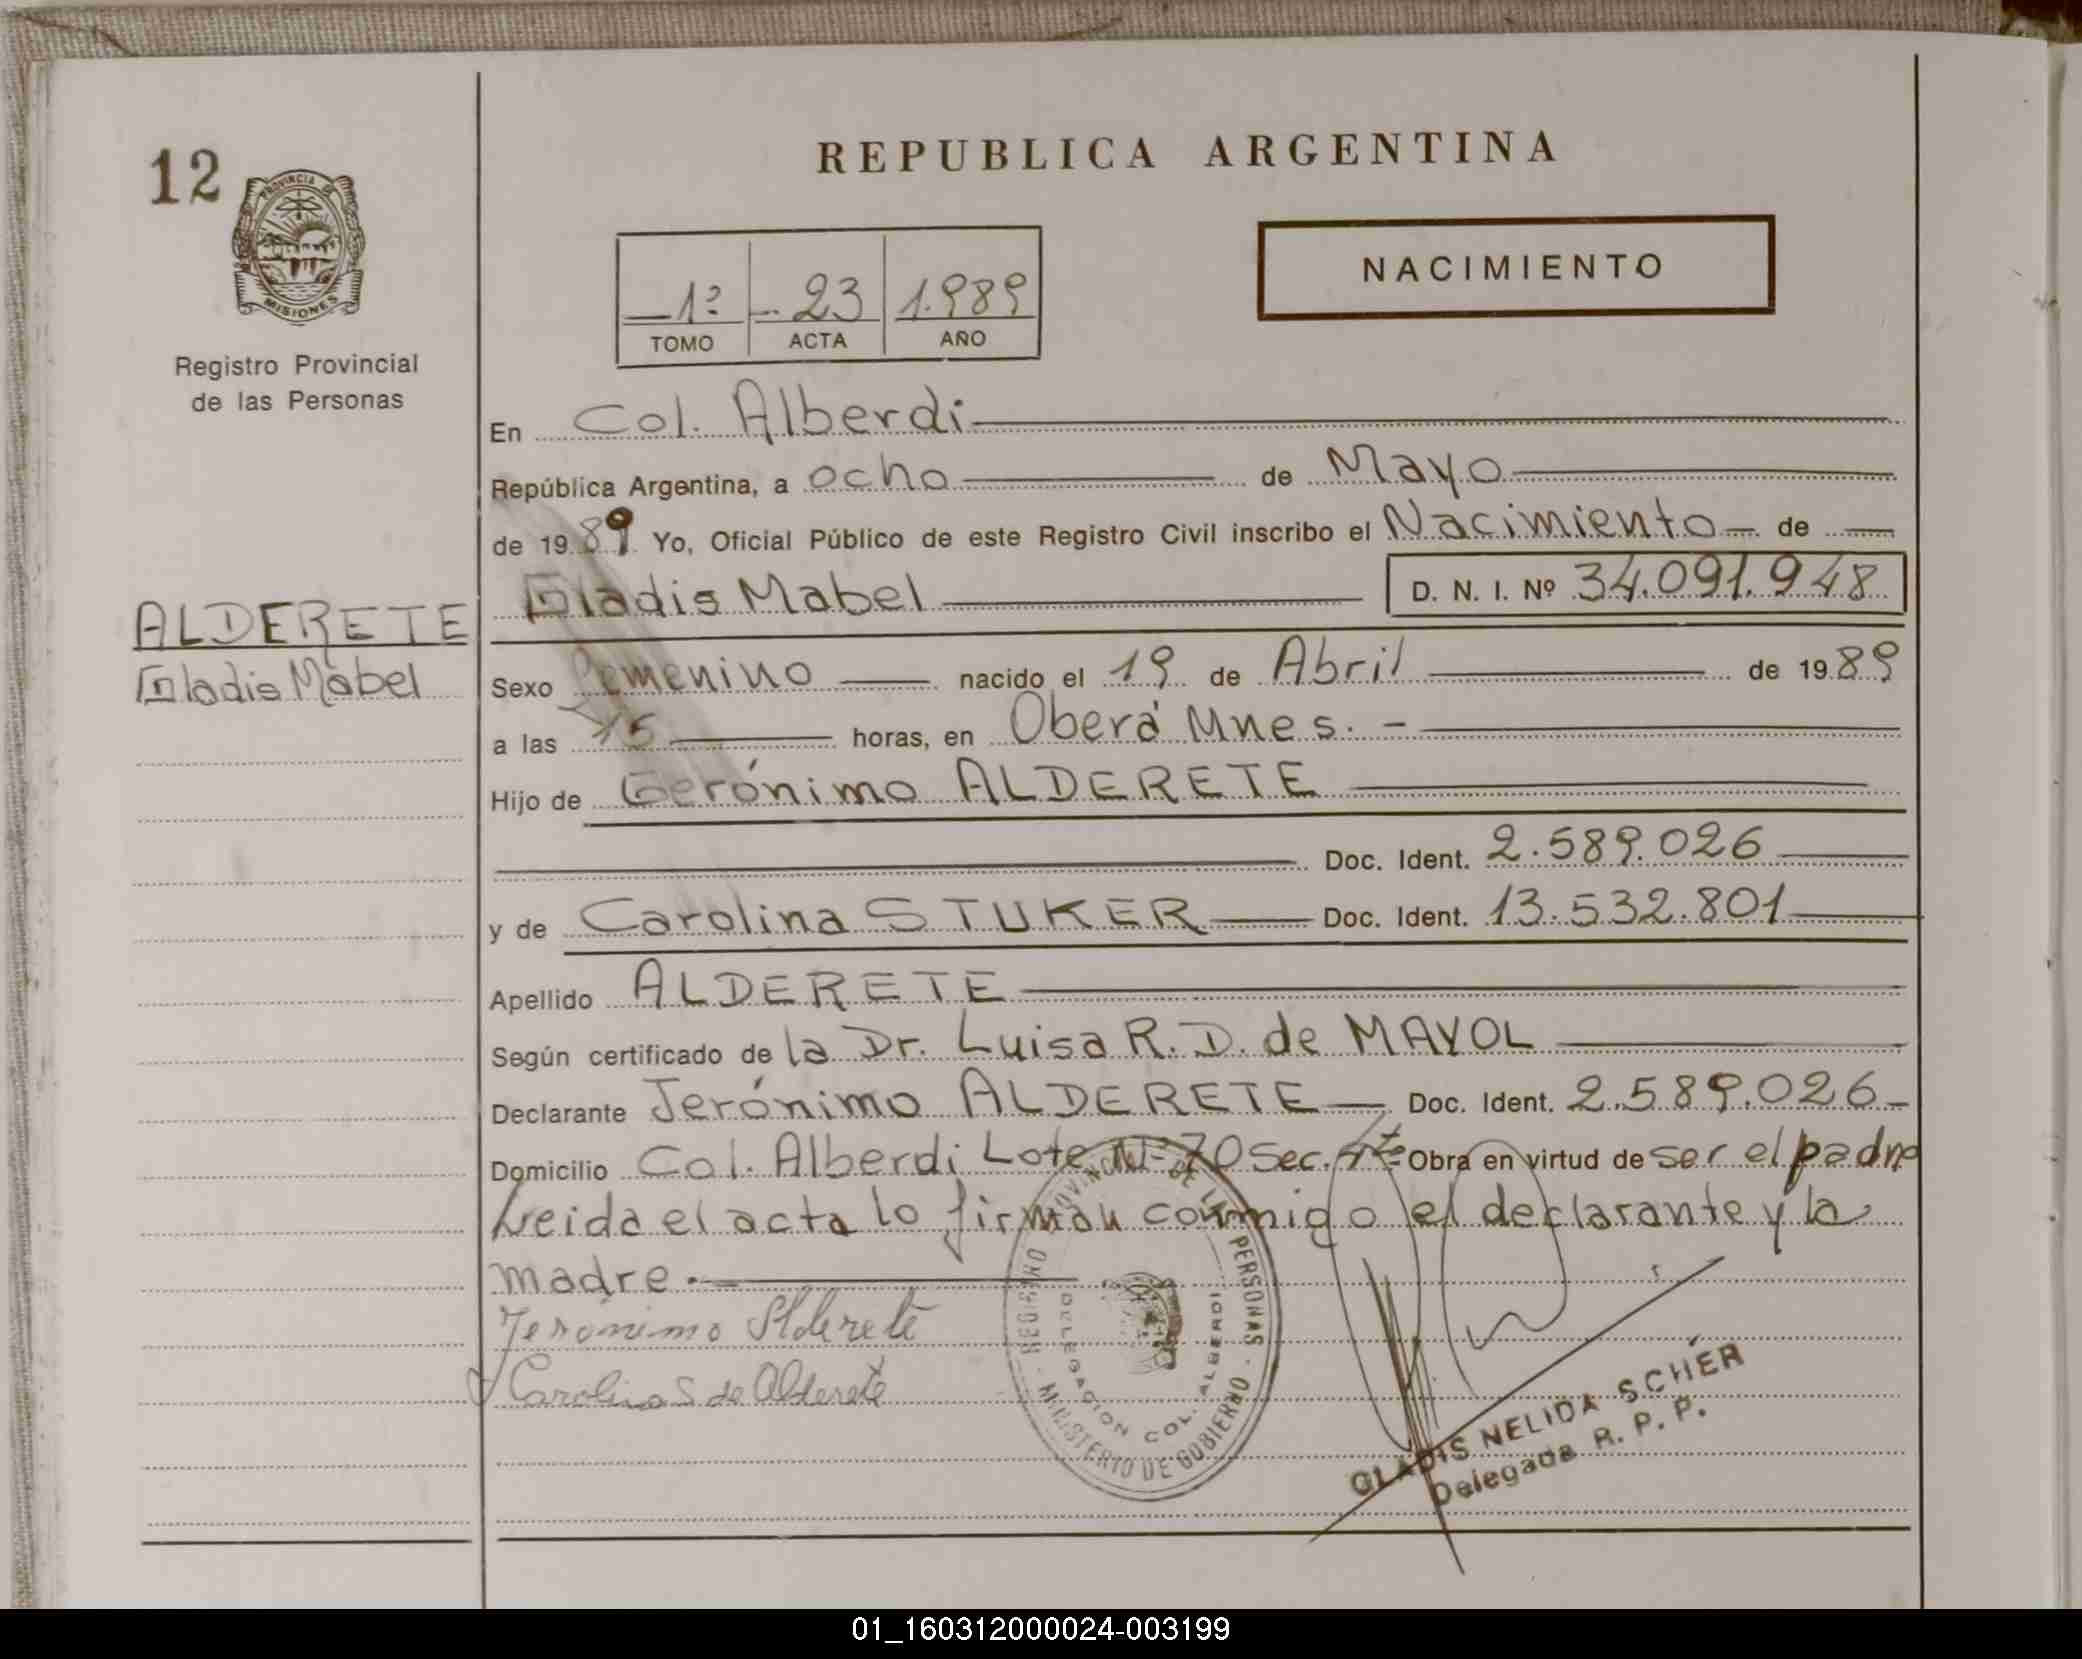 12
PROVINCIA DE
MISIONES
Registro Provincial
de las Personas
ALDERETE
Gladis Mabel
REPUBLICA ARGENTINA
1º 23 1.989
TOMO ACTA AÑO
NACIMIENTO
En Col. Alberdi
República Argentina, a ocho de Mayo
de 1989 Yo, Oficial Público de este Registro Civil inscribo el Nacimiento de
Gladis Mabel D. N. I. Nº 34.091.948
Sexo Femenino nacido el 19 de Abril de 1989
a las 15 horas, en Oberá Mnes. -
Hijo de Gerónimo ALDERETE
Doc. Ident. 2.589.026
y de Carolina STUKER Doc. Ident. 13.532.801
Apellido ALDERETE
Según certificado de la Dr. Luisa R. D. de MAYOL
Declarante Jerónimo ALDERETE Doc. Ident. 2.589.026
Domicilio Col. Alberdi Lote Nº 70 Sec. Obra en virtud de ser el padre
Leida el acta lo firman conmigo el declarante y la
madre.
Jerónimo Alderete
Carolina S de Alderete
REGISTRO PROVINCIAL DE LAS PERSONAS - MINISTERIO DE GOBIERNO -
DELEGACION COL. ALBERDI
GLADIS NELIDA SCHÉR
Delegada R. P. P.
01_160312000024-003199